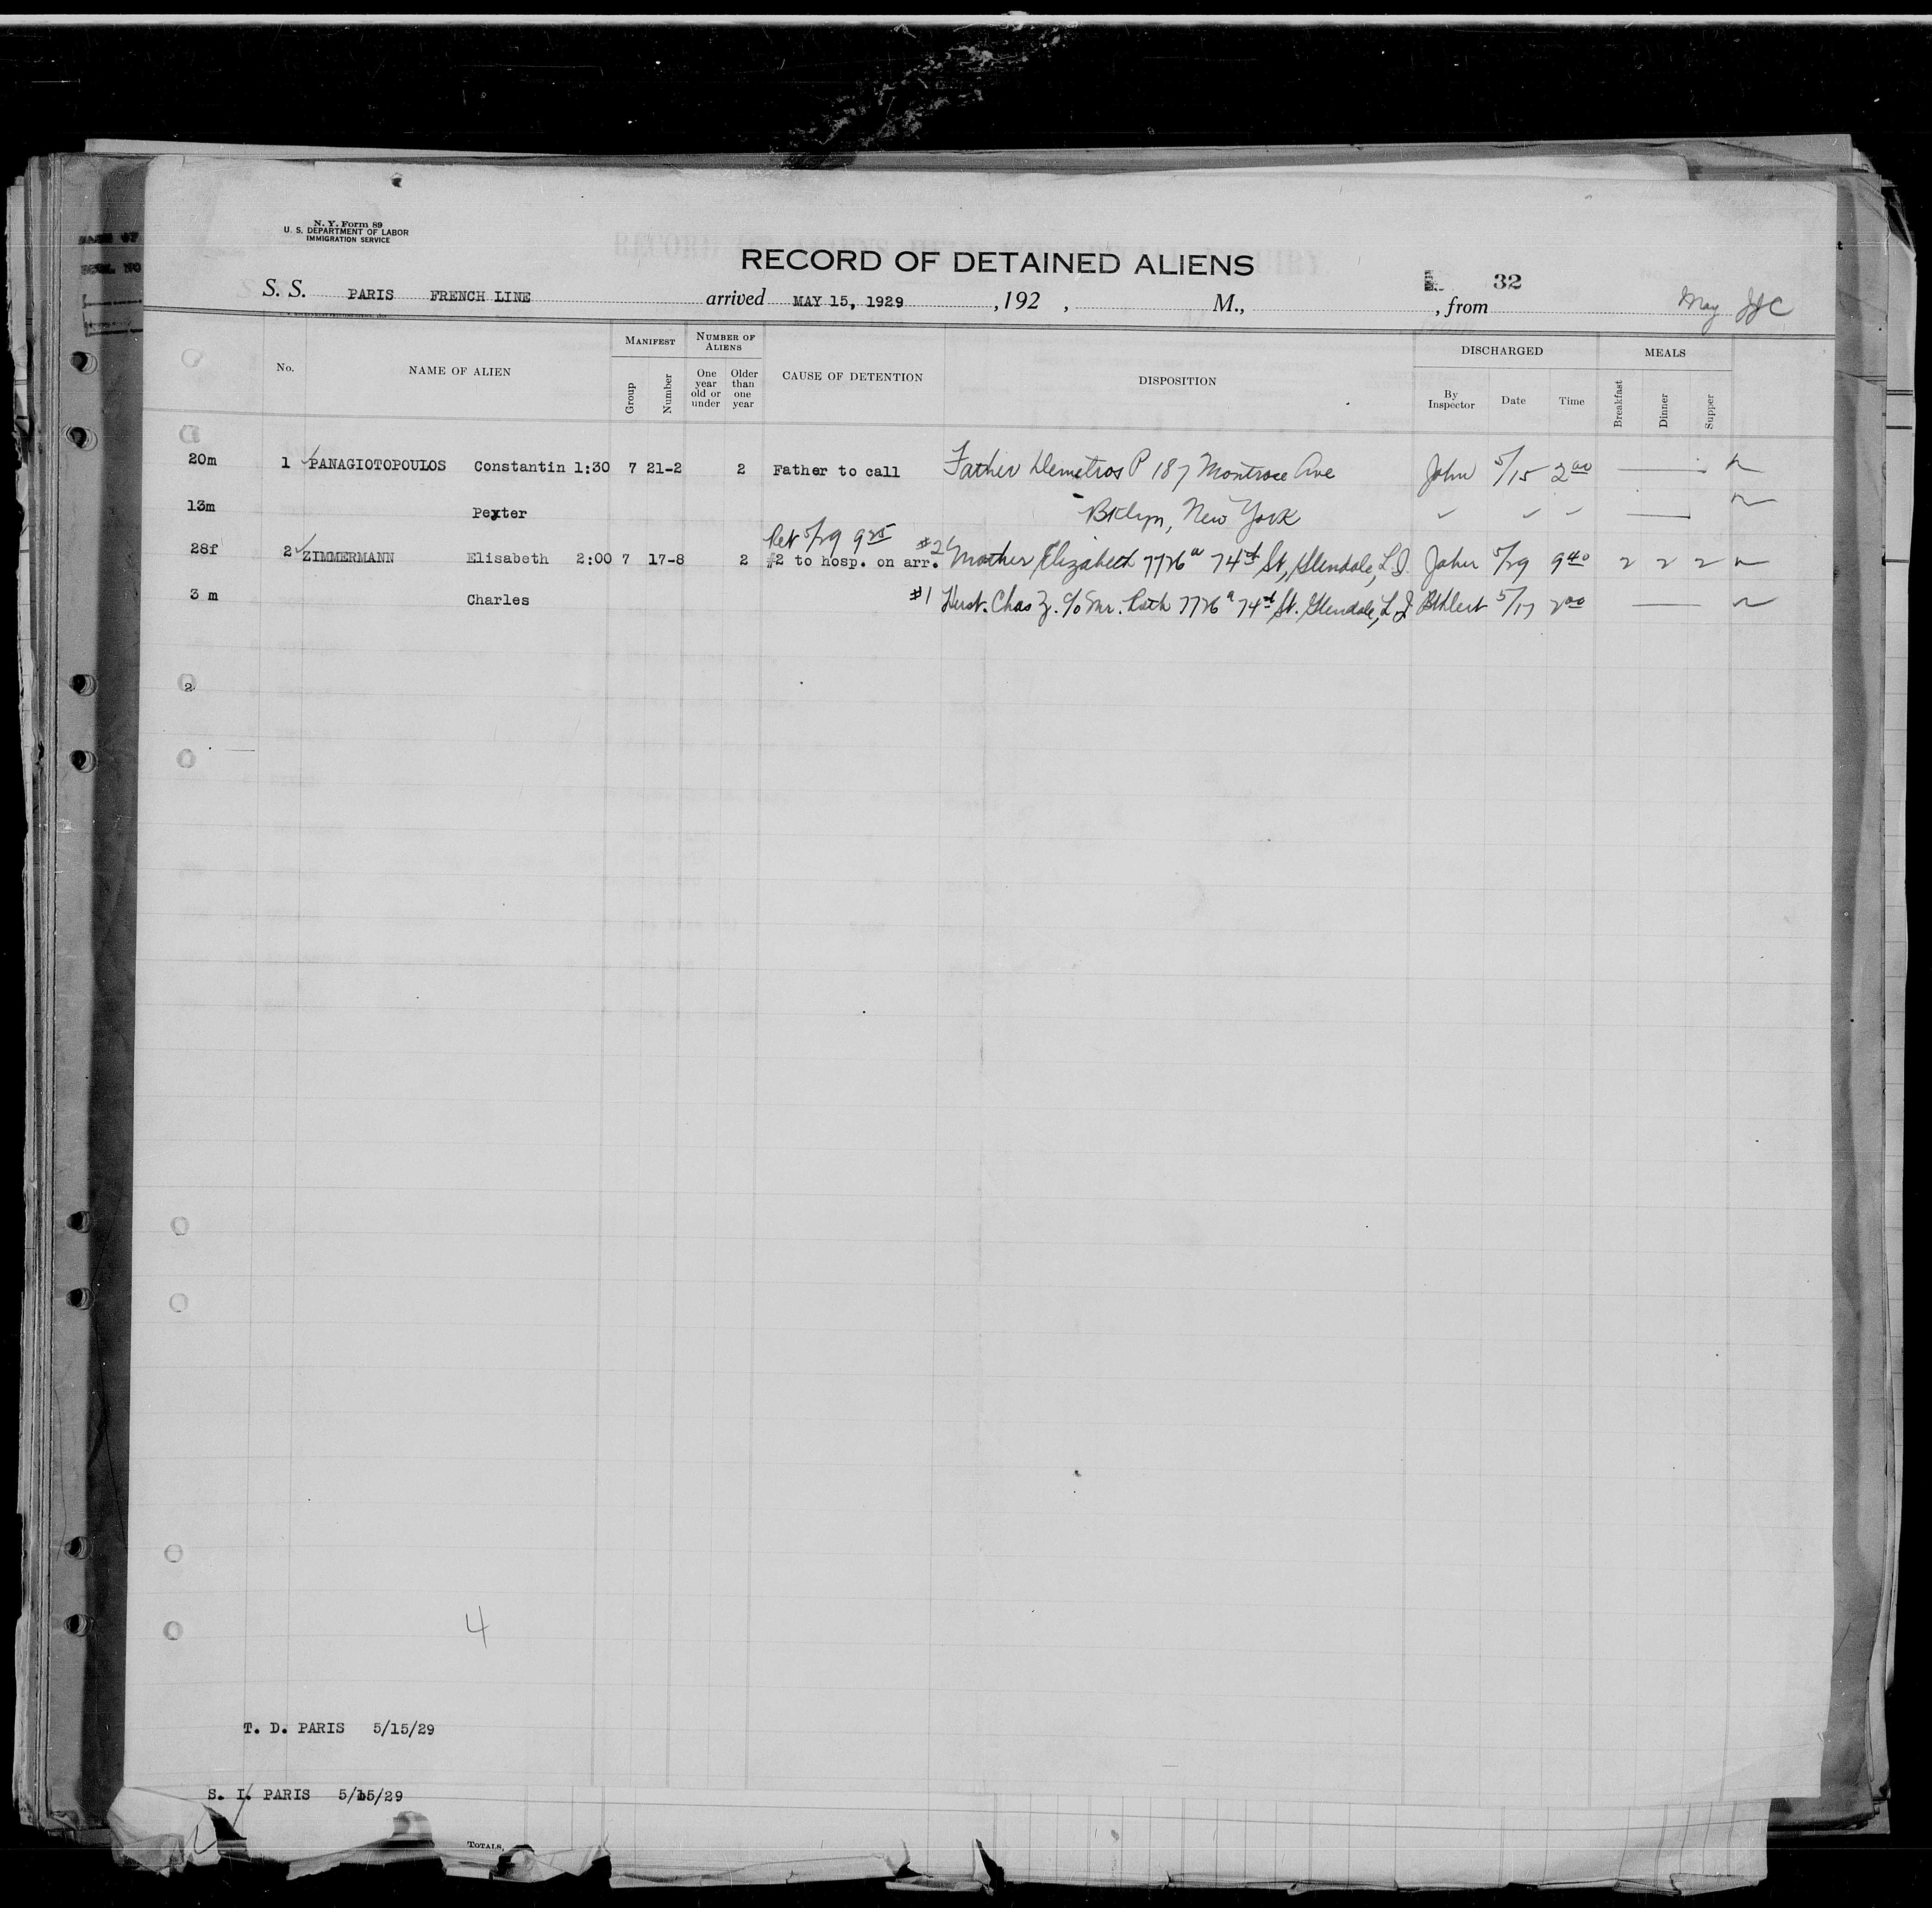 N. Y. Form 89
U. S. DEPARTMENT OF LABOR
IMMIGRATION SERVICE
RECORD OF DETAINED ALIENS
32
S. S. PARIS FRENCH LINE arrived MAY 15, 1929 , 192 , M., , from May
No. NAME OF ALIEN MANIFEST Group Number NUMBER OF ALIENS One year old or under Older than one year CAUSE OF DETENTION DISPOSITION DISCHARGED By Inspector Date Time MEALS Breakfast Dinner Supper
20m 1 PANAGIOTOPOULOS Constantin 1:30 7 21-2 2 Father to call Father Demetros P 187 Montrose Ave John 5/15 2 00
13m Pexter Bklyn, New York
Ret 5/29 9 35
28f 2 ZIMMERMANN Elisabeth 2:00 7 17-8 2 #2 to hosp. on arr. #2 Mother Elizabeth 7726a 74th St, Glendale, L.I. 5/29 9 40 2 2 2
3 m Charles #1 Husb. Chas Z. c/o Mr. Rath 7726a 74th St. Glendale, L I 5/17 2 00
2
4
T. D. PARIS 5/15/29
S. I. PARIS 5/15/29
TOTALS,